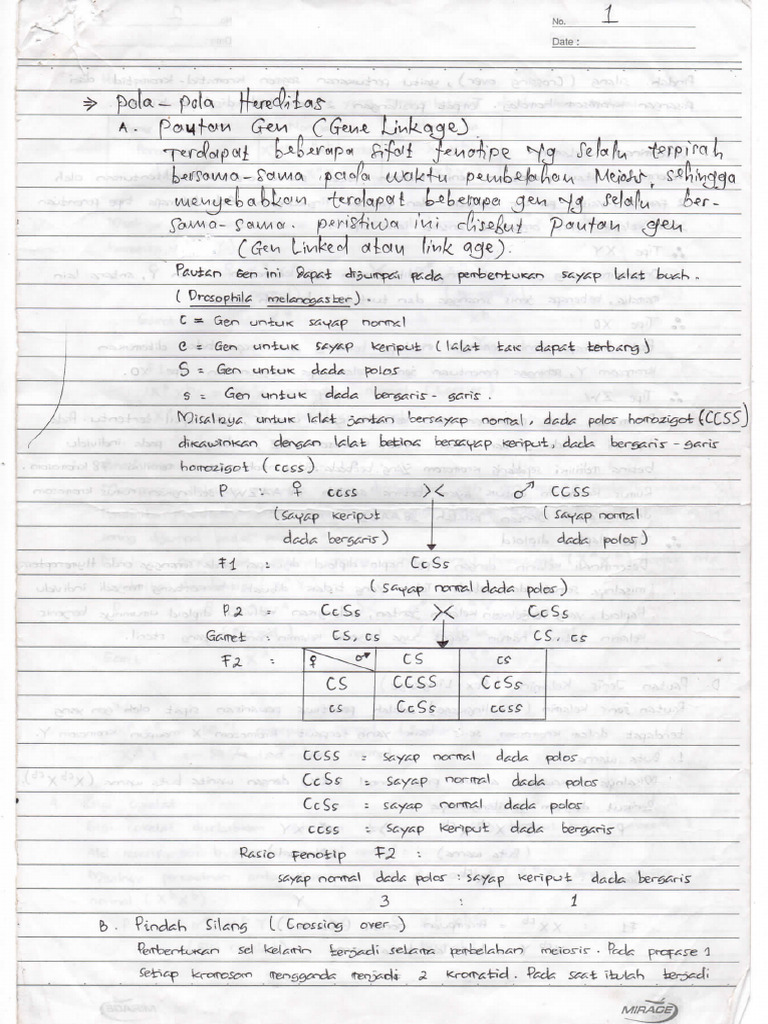 No. 1
Date :
⇒ Pola-Pola Hereditas
A. Pautan Gen (Gene Linkage).
Terdapat beberapa sifat fenotipe yg selalu terpisah
bersama-sama pada waktu pembelahan Meiosis, sehingga
menyebabkan terdapat beberapa gen yg selalu ber-
sama-sama. peristiwa ini disebut Pautan gen
(Gen Linked atau link age).
Pautan Gen ini dapat dijumpai pada pembentukan sayap lalat buah.
(Drosophila melanogaster).
C = Gen untuk sayap normal
c = Gen untuk sayap keriput (lalat tak dapat terbang)
S = Gen untuk dada polos
s = Gen untuk dada bergaris-garis.
Misalnya untuk lalat jantan bersayap normal, dada polos homozigot (CCSS)
dikawinkan dengan lalat betina bersayap keriput, dada bergaris-garis
homozigot (ccss).
P : ♀ ccss >< ♂ CCSS
(sayap keriput (sayap normal
dada bergaris) dada polos)
F1 : CcSs
(sayap normal dada polos)
P2 = CcSs >< CcSs
Gamet : CS, cs CS, cs
F2 : ♀ ♂ CS cs
CS CCSS CcSs
cs CcSs ccss
CCSS = sayap normal dada polos
CcSs = sayap normal dada polos
CcSs = sayap normal dada polos
ccss = sayap keriput dada bergaris
Rasio Fenotip F2 :
sayap normal dada polos : sayap keriput dada bergaris
3 : 1
B. Pindah Silang ((Crossing over.)
Pembentukan sel kelamin terjadi selama pembelahan meiosis. Pada profase 1
setiap kromosom mengganda menjadi 2 kromatid. Pada saat itulah terjadi
MIRAGE